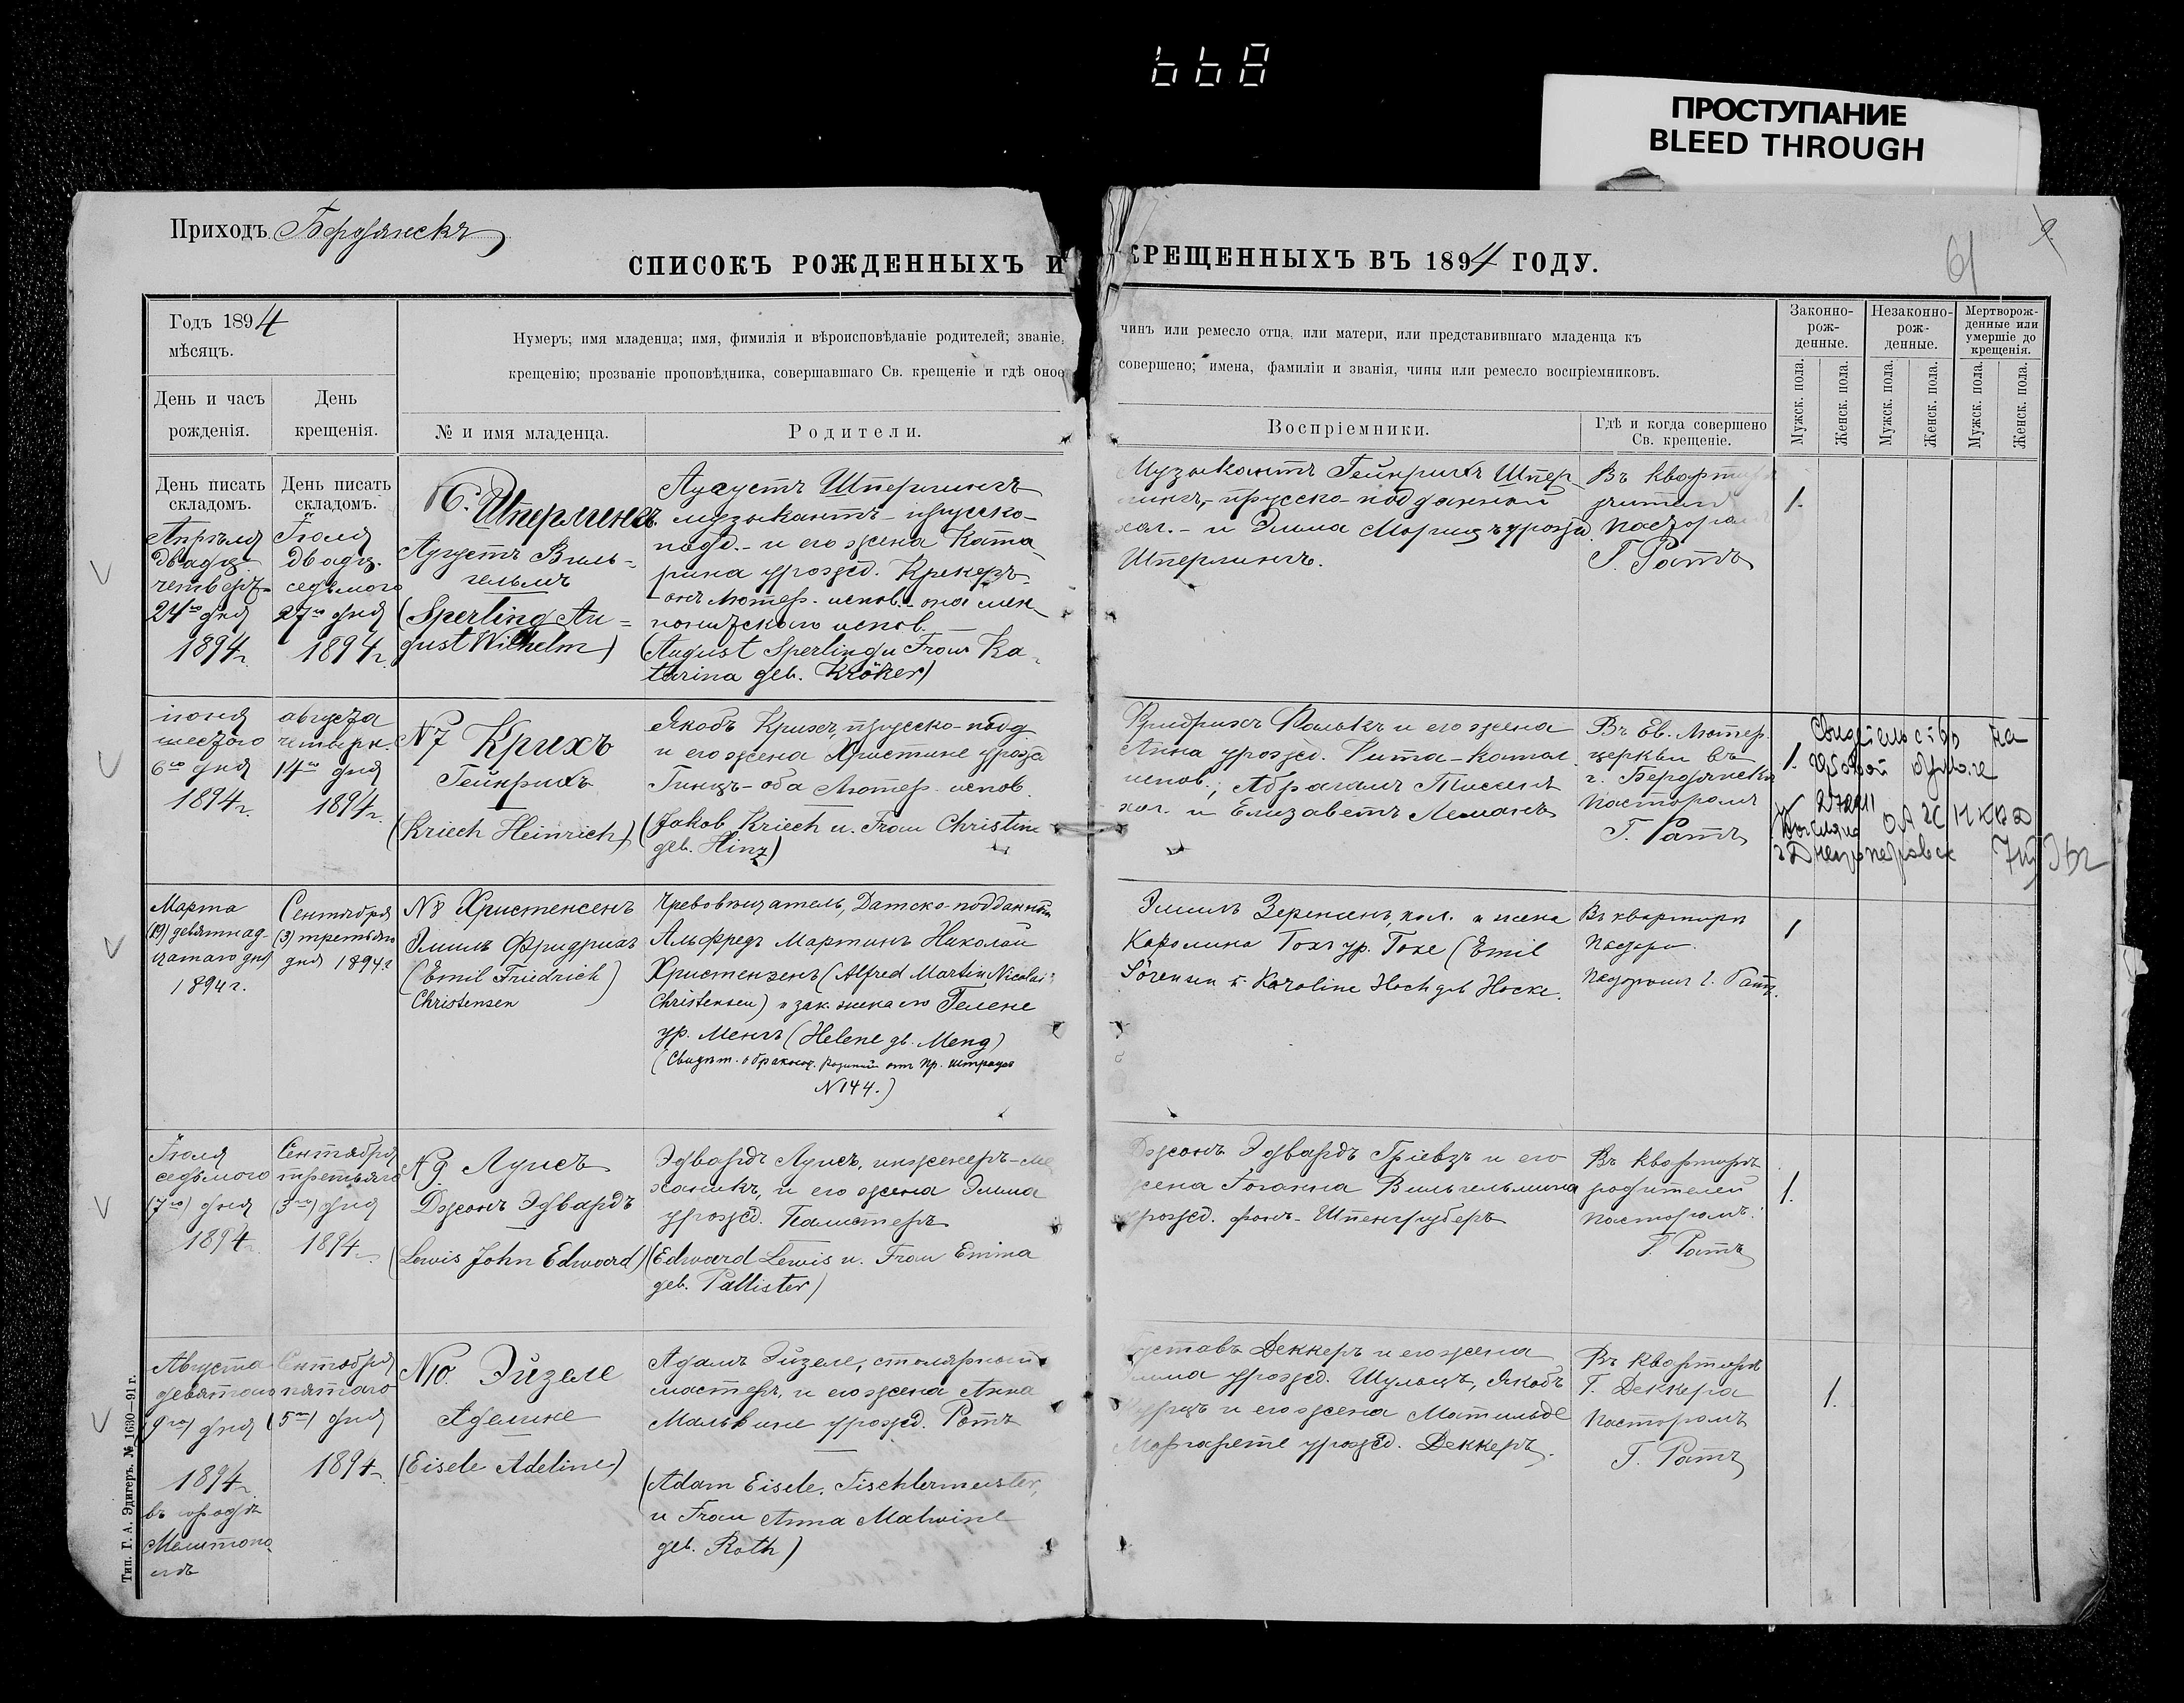 668
ПРОСТУПАНИЕ
BLEED THROUGH
Приходъ Бердянскъ
61
СПИСОКЪ РОЖДЕННЫХЪ И КРЕЩЕННЫХЪ ВЪ 1894 ГОДУ.
Годъ 1894
мѣсяцъ.
День и часъ
рожденія.
День
крещенія.
Нумеръ; имя младенца; имя, фимилія и вѣроисповѣданіе родителей; званіе,
крещенію; прозваніе проповѣдника, совершавшаго Св. крещеніе и гдѣ оное
№ и имя младенца.
Родители.
чинъ или ремесло отца, или матери, или представившаго младенца къ
совершено; имена, фамиліи и званія, чины или ремесло воспріемниковъ.
Воспріемники.
Гдѣ и когда совершено
Св. крещеніе.
Законно-
рож-
денные.
Незаконно-
рож-
денные.
Мертворож-
денные или
умершіе до
крещенія.
Мужск. пола.
Женск. пола.
Мужск. пола.
Женск. пола.
Мужск. пола.
Женск. пола.
День писать
складомъ.
Апрѣля
двадц.
четверт.
24го дня
1894г.
День писать
складомъ.
Іюля
двадц.
седьмого
27го дня
1894г.
Шперлингъ
Августъ Виль-
гельмъ
(Sperling Au=
gust Wilhelm)
Августъ Шперлингъ
музыкантъ - прусско-
подд. - и его жена Ката-
рина урожд. Крекеръ
- онъ лютер. испов. - она мен-
нонитскаго испов.
(August Sperling u Frau Ka-
tarina geb. Kröker)
Музыкантъ Гейнрихъ Шпер
лингъ, прусско-подданной
кол. - и Эмма Морицъ урожд.
Шперлингъ.
Въ квартирѣ
Пасторомъ
Г. Ратъ
1.
іюня
шестого
6го дня
1894г.
августа
четырн.
14го дня
1894г.
N7 Крихъ
Гейнрихъ
(Kriech Heinrich)
Якобъ Крихъ, прусско-подд.
и его жена Христине урожд.
Гинцъ - оба Лютер. испов.
(Jakob Kriech u. Frau Christine
geb. Hinz)
Фридрихъ Фалькъ и его жена
Анна урожд.
испов.; Абрагамъ
кол. и Елизаветъ Леманъ
Въ Ев. Лютер.
церкви въ
г. Бердянскѣ
Пасторомъ
Г. Ратъ
1.
Свидетельство на
Днепропетровск
Марта
(19) девятнад-
цатаго дня
1894 г.
Сентября
(3) третьяго
дня 1894 г.
N8 Христенсенъ
Эмиль Фридрихъ
(Emil Friedrich)
Christensen
Чревовѣщатель, Датско-подданный
Альфредъ Мартинъ Николай
Христензенъ (Alfred Martin Nicolai
Christensen) и зак. жена его Гелене
ур. Менгъ (Helene gb. Meng)
N 144.)
Эмиль Зеренсенъ, кол. и жена
Каролина Гохъ ур. Гоке (Emil
Sörensen u. Karoline Hoch geb Hocke.
Въ квартирѣ
Пастора.
Пасторомъ Г. Ратъ.
1
Іюля
седьмого
(7го) дня
1894г.
Сентября
третьяго
(3го) дня
1894г.
N9. Луисъ
Джонъ Эдвардъ
(Lewis John Edward)
Эдвардъ Луисъ, инженеръ-ме
ханикъ, и его жена Эмма
урожд. Палистеръ
(Edward Lewis u. Frau Emma
geb. Pallister)
Джонъ Эдвардъ Гріевзъ и его
жена Іоганна Вильгельмина
урожд. фонъ-Шпенгруберъ
Въ квартирѣ
родителей
пасторомъ
Г. Ратъ
1.
Августа
девятого
(9го) дня
1894г.
въ городѣ
Мелитопо-
лѣ
Сентября
пятаго
(5го) дня
1894г.
N10. Эйзеле
Аделине
(Eisele Adeline)
Адамъ Эйзеле, столярный
мастеръ, и его жена Анна
Мальвине урожд. Ротъ
(Adam Eisele, Tischlermeister,
u Frau Anna Malwine
geb. Roth)
Густавъ Деккеръ и его жена
Эмма урожд. Шульцъ, Якобъ
и его жена Матильде
Маргарете урожд. Деккеръ.
Въ квартирѣ
Г. Деккера
пасторомъ
Г. Ратъ
1.
Тип. Г. А. Эдигеръ. № 1630—91 г.